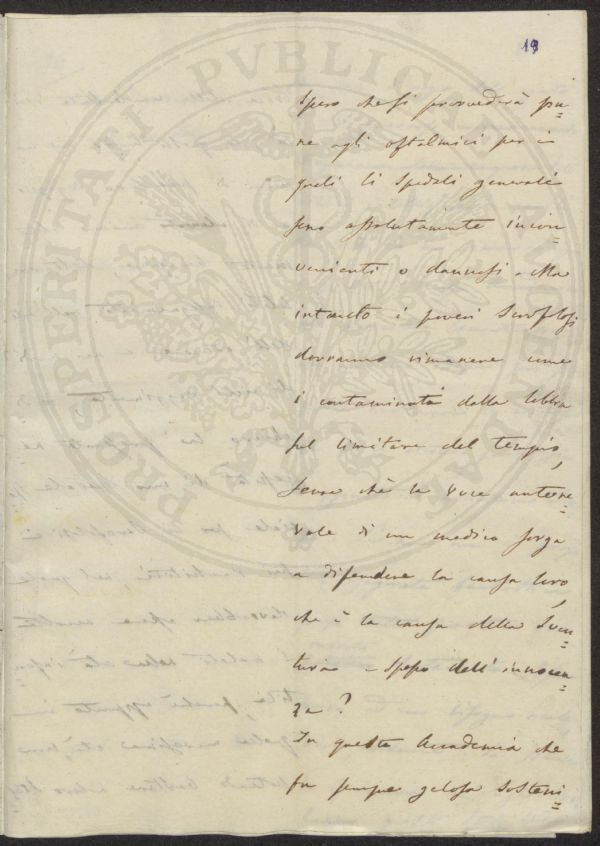 19
spero che si provvederà pu=
re agli oftalmici per i
quali li spedali generali
sono assolutamente incon=
venienti o dannosi. Ma
intanto i poveri Scrofolosi
dovranno rimanere come
i contaminati dalla lebbra
sul limitare del tempio,
senza che la voce autore=
vole di un medico sorga
a difendere la causa loro,
che è la causa della Sven=
tura - spesso dell'innocen=
za?
In questa Accademia che
fu sempre gelosa sosteni=
PROSPERITATI PVBLICAE AVGENDAE